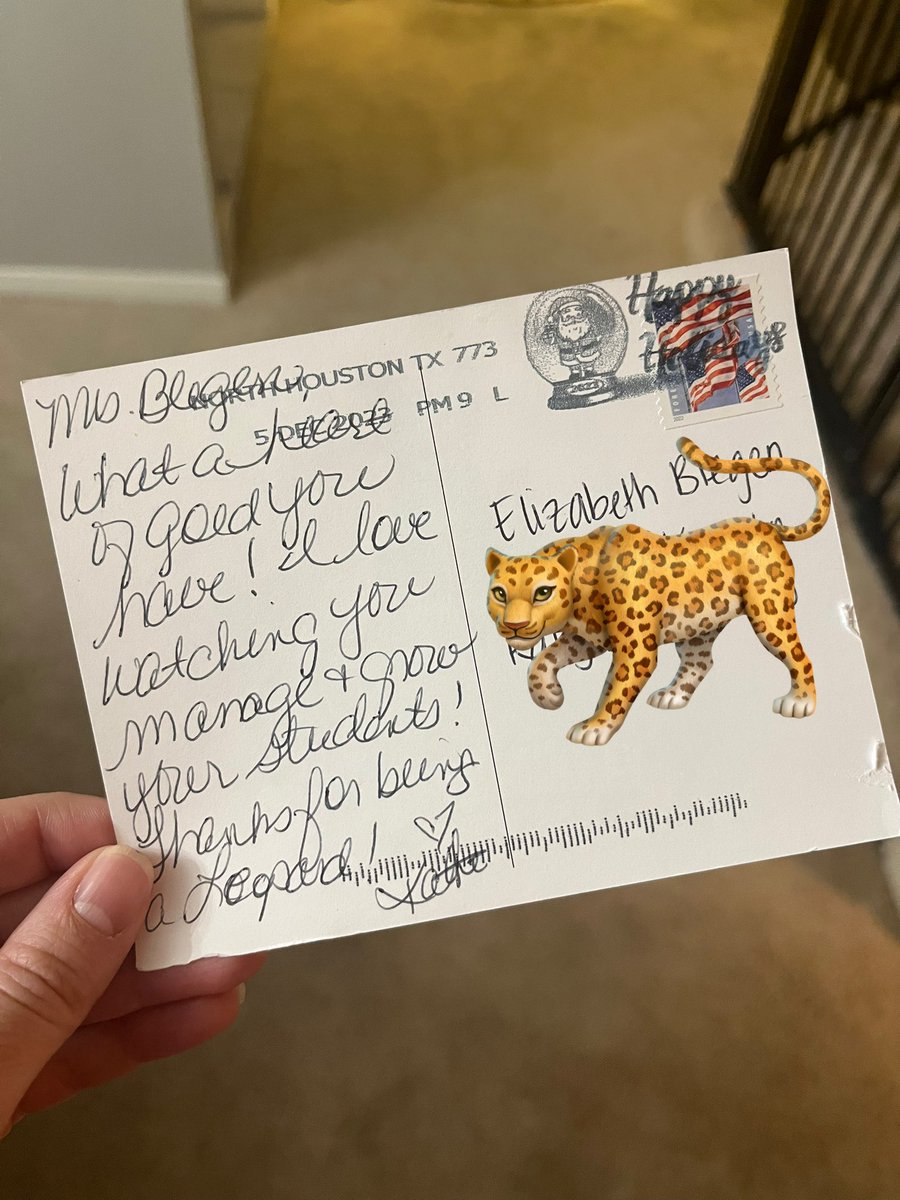 Ms. Blegen,
What a heart
of gold you
have! I love
watching you
manage + grow
your students!
Thanks for being
a Leopard!
Katie
NORTH HOUSTON TX 773
5 DEC 2022 PM 9 L
Happy
Holidays
FOREVER
USA
2022
Elizabeth Blegen